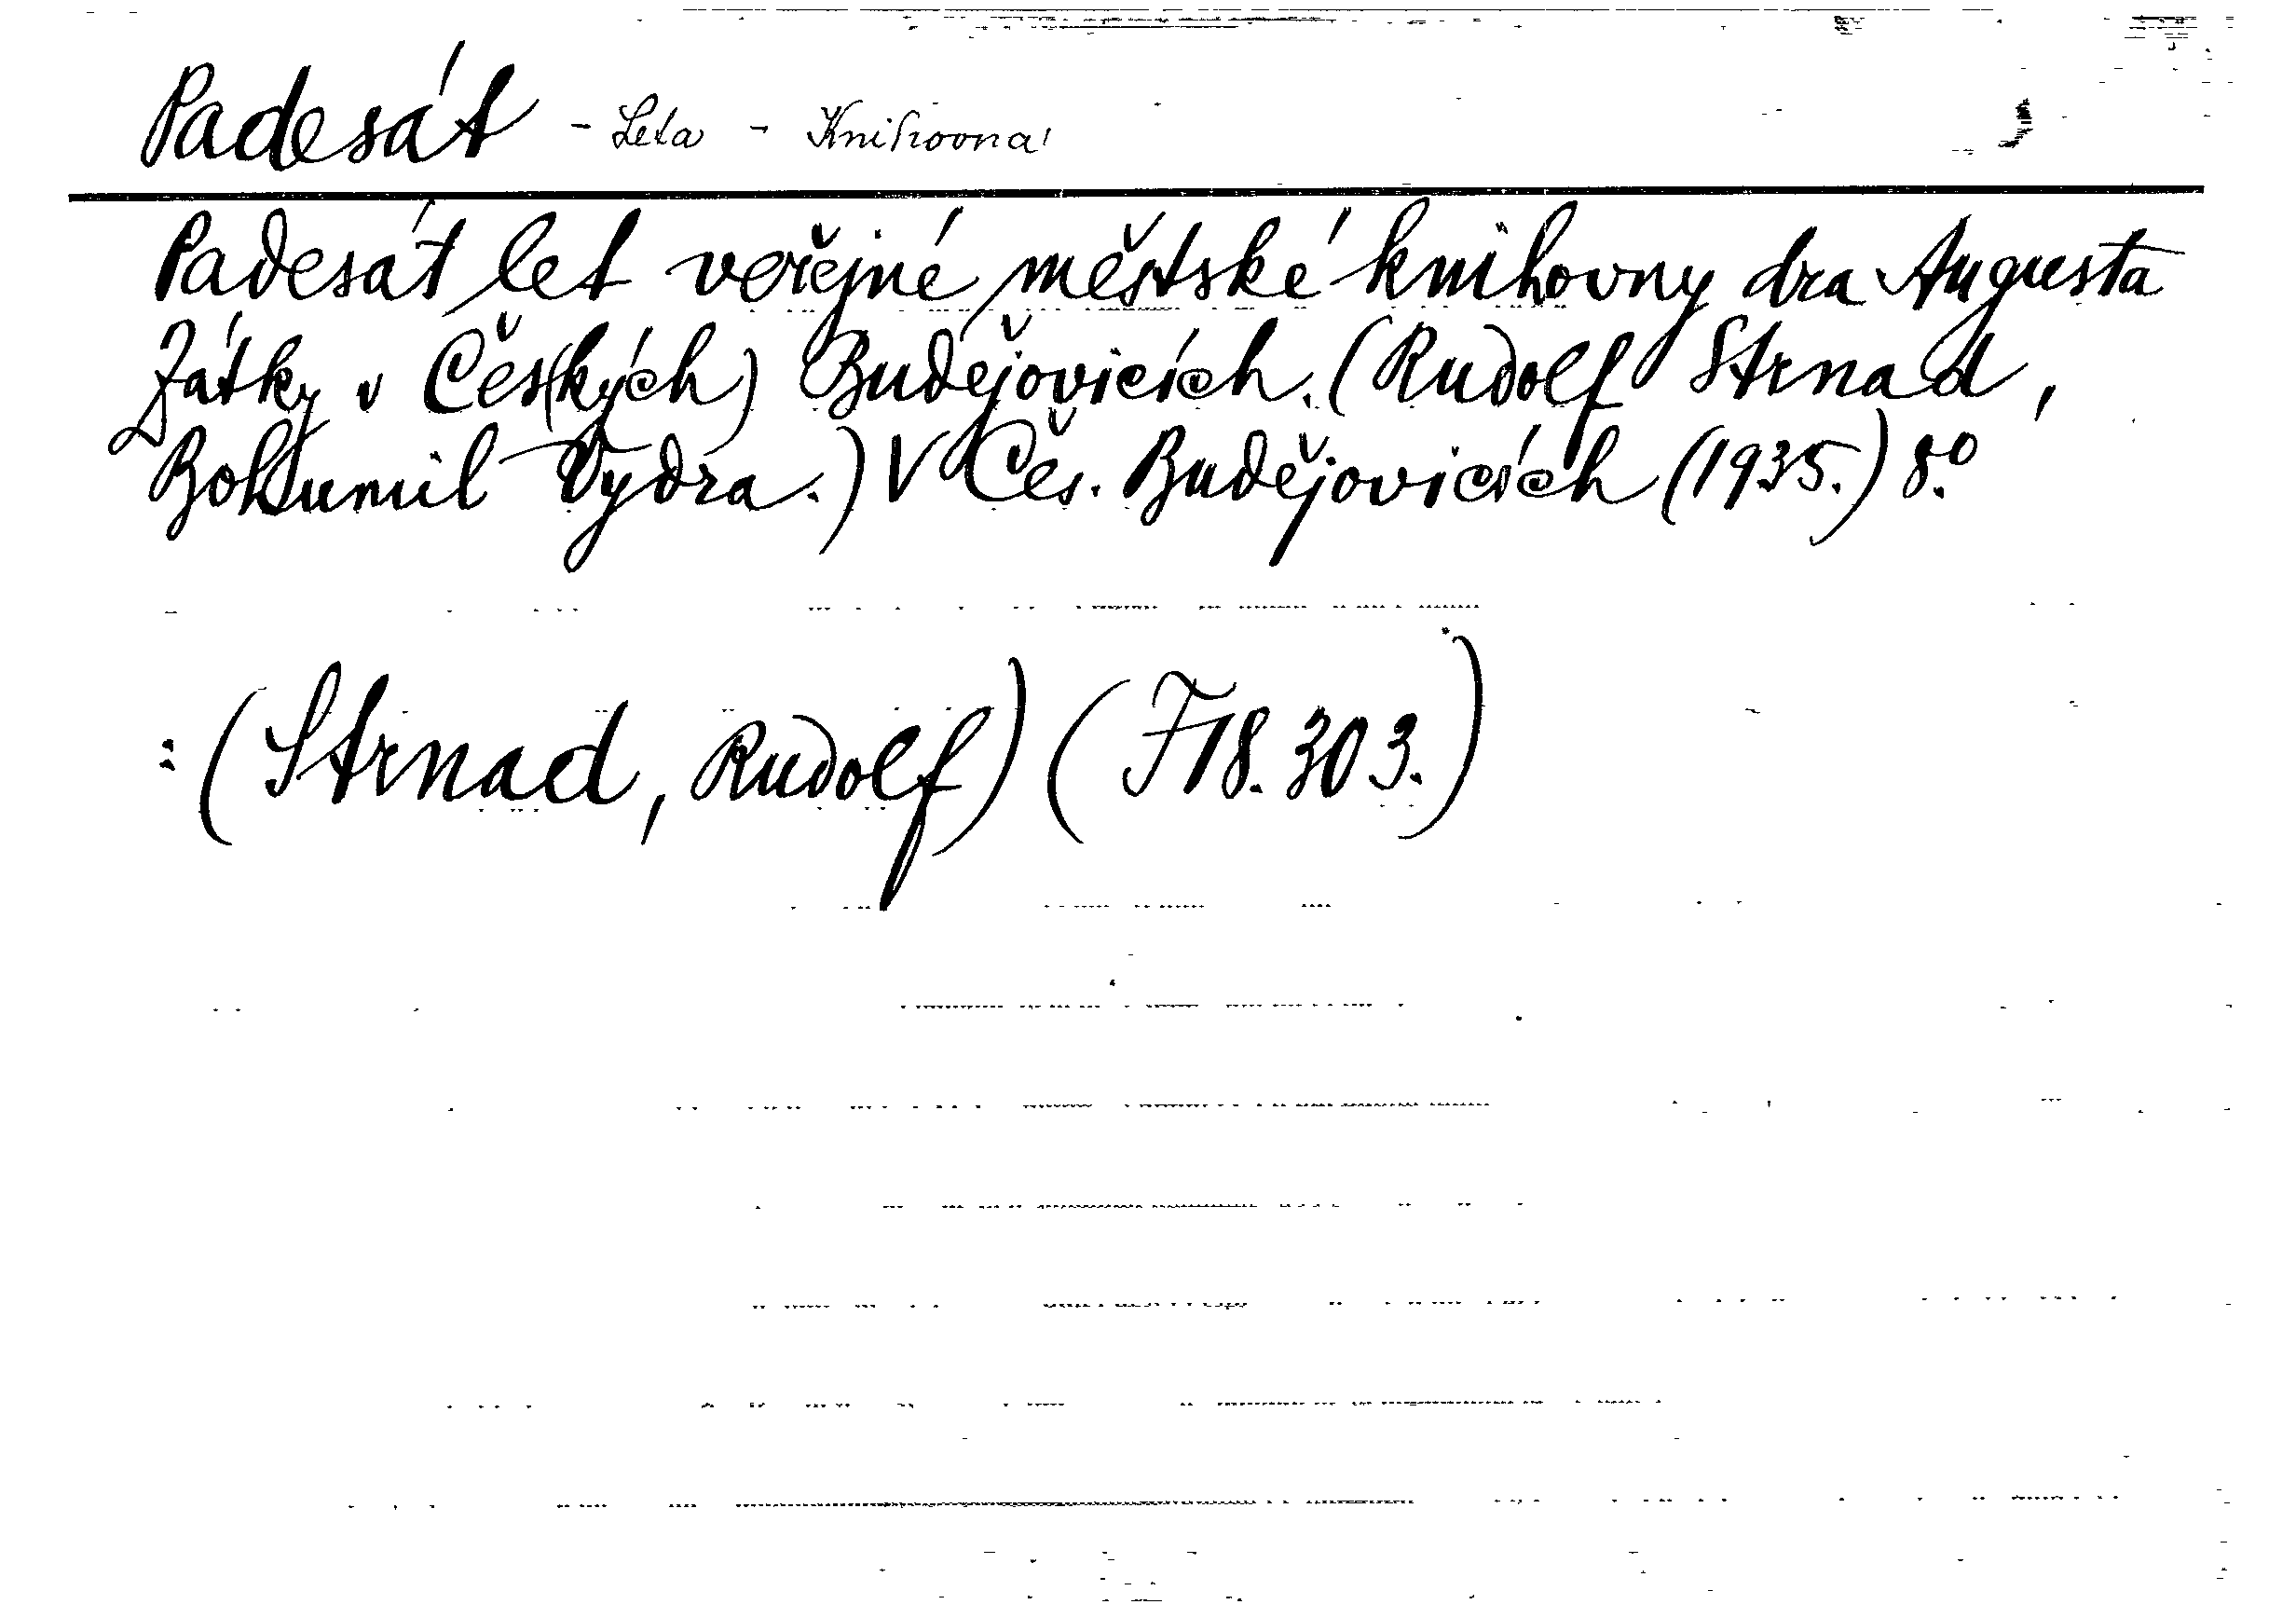 Padesát - Leta - Knihovna
Padesát let veřejné městské knihovny dra Augusta
Zátky v Čes(kých) Budějovicích. (Rudolf Strnad,
Bohumil Vydra.) V Čes. Budějovicích (1935.) 8.º
: (Strnad, Rudolf) (F 18. 303.)